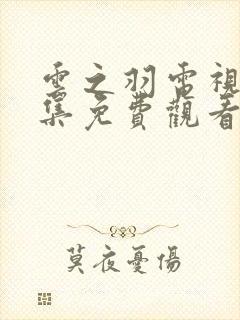 雲之羽電視
集免費觀看
莫夜憂傷